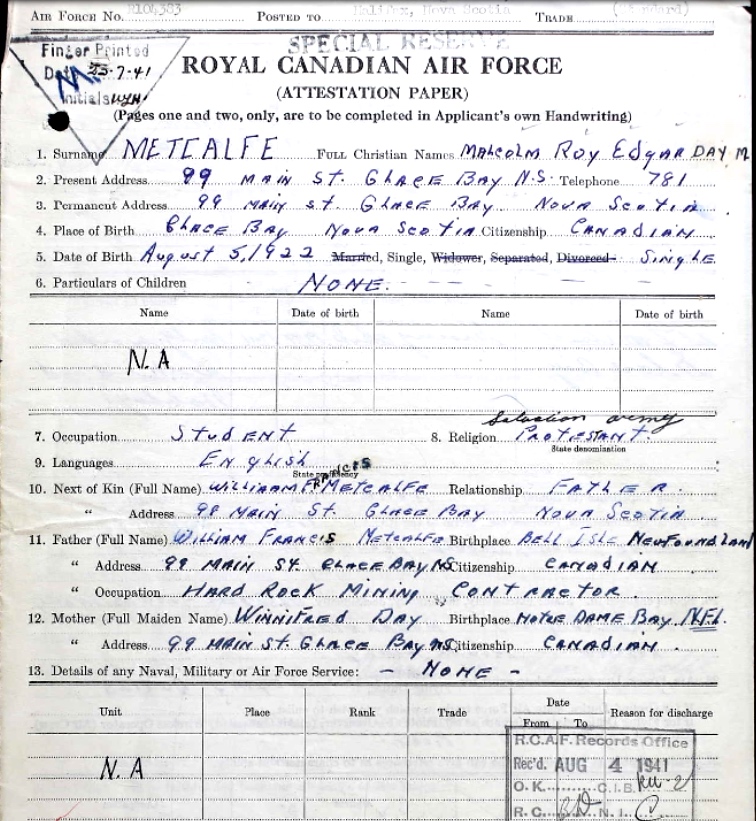 AIR FORCE No. R104383 POSTED TO Halifax, Nova Scotia TRADE (Standard)
SPECIAL RESERVE
Finger Printed
Date 23-7-41
Initials
ROYAL CANADIAN AIR FORCE
(ATTESTATION PAPER)
(Pages one and two, only, are to be completed in Applicant's own Handwriting)
1. Surname METCALFE FULL Christian Names MALCOLM ROY EDGAR DAY M.
2. Present Address 99 MAIN ST. GLACE BAY N.S. Telephone 781
3. Permanent Address 99 MAIN ST. GLACE BAY NOVA SCOTIA
4. Place of Birth GLACE BAY NOVA SCOTIA Citizenship CANADIAN
5. Date of Birth August 5, 1922 Married, Single, Widower, Separated, Divorced SINGLE
6. Particulars of Children - NONE. - - - -
Name Date of birth Name Date of birth
N.A
Salvation army
7. Occupation STUDENT 8. Religion PROTESTANT.
State denomination
9. Languages ENglish
State proficiency
FRANCIS
10. Next of Kin (Full Name) WILLIAM F. METCALFE Relationship FATHER.
" Address 98 MAIN ST. GLACE BAY NOVA SCOTIA
11. Father (Full Name) WILLIAM FRANCIS METCALFE Birthplace BELL ISLE NEWFOUNDLAND
" Address 99 MAIN ST. GLACE BAY NS Citizenship CANADIAN
" Occupation HARD ROCK MINING CONTRACTOR.
12. Mother (Full Maiden Name) WINNIFRED DAY Birthplace NOTRE DAME BAY NFL.
" Address 99 MAIN ST. GLACE BAY NS Citizenship CANADIAN.
13. Details of any Naval, Military or Air Force Service: - NONE -
Unit Place Rank Trade Date Reason for discharge
From To
N.A
R.C.A.F. Records Office
Rec'd. AUG 4 1941
O.K. C.I.B.
R.C. N.I. C